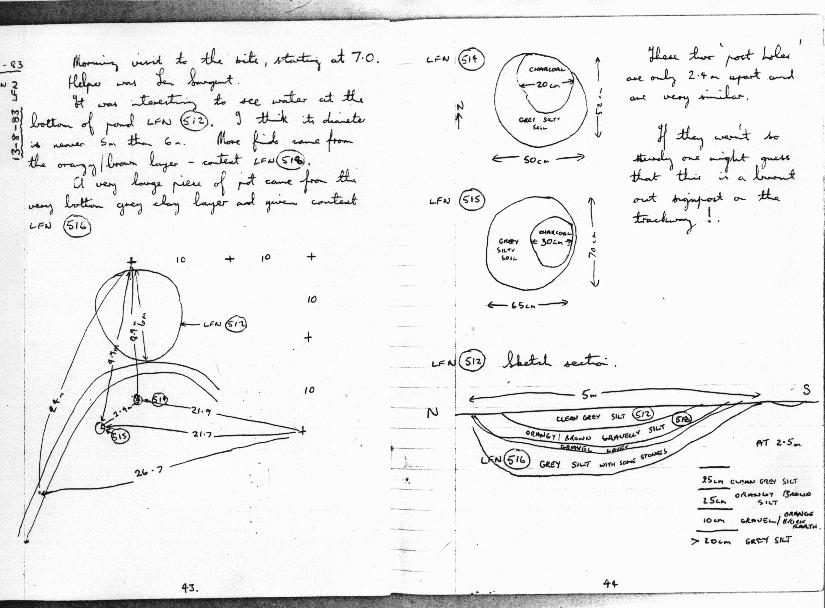 - 83
13-8-83 LFN
Morning visit to the site, starting at 7.0.
Helper was Len Sargent.
It was interesting to see water at the
bottom of pond LFN 512. I think its diameter
is nearer 5m than 6m. More finds came from
the orangy/brown layer - context LFN 518.
A very large piece of pot came from the
very bottom grey clay layer and given context
LFN 516
+ 10 + 10 +
10
+
10
+
LFN 512
6m
8.9m
9.7m
24m
2.4m
514
515
21.9
21.7
26.7
43.
LFN 514
CHARCOAL
20cm
GREY SILTY
SOIL
52cm
50cm
N
LFN 515
CHARCOAL
30cm
GREY
SILTY
SOIL
70cm
65cm
These two 'post holes'
are only 2.4m apart and
are very similar.
If they weren't so
sturdy one might guess
that this is a burnt
out signpost on the
trackway!
LFN 512 Sketch section.
5m
N
S
CLEAN GREY SILT 512
ORANGY/BROWN GRAVELLY SILT 518
GRAVEL LAYER
LFN 516 GREY SILT WITH SOME STONES
AT 2.5m
25cm CLEAN GREY SILT
25cm ORANGY BROWN
SILT
10cm GRAVEL/ORANGE
BRICK
EARTH.
> 20cm GREY SILT
44